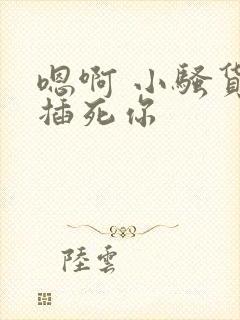 嗯啊 小骚货
插死你
陸雲